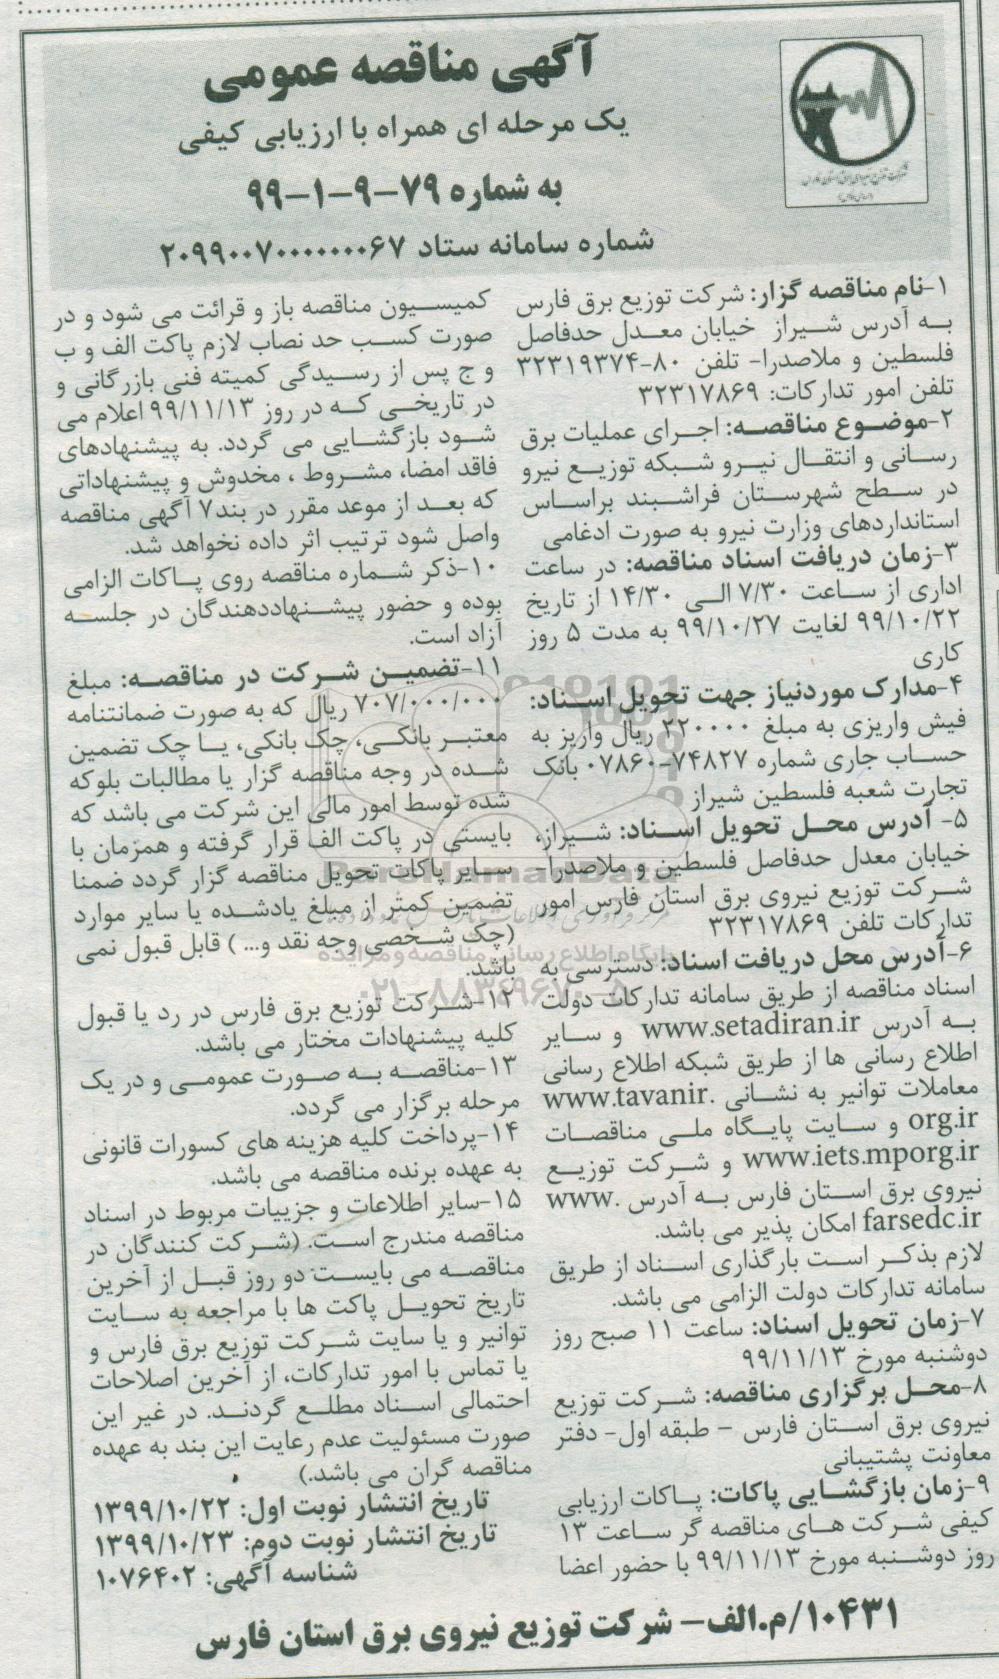 آگهی مناقصه عمومی
یک مرحله ای همراه با ارزیابی کیفی
به شماره ۷۹-۹-۱-۹۹
شماره سامانه ستاد ۲۰۹۹۰۰۷۰۰۰۰۰۰۰۶۷
۱-نام مناقصه گزار: شرکت توزیع برق فارس
به آدرس شیراز خیابان معدل حدفاصل
فلسطین و ملاصدرا- تلفن ۸۰-۳۲۳۱۹۳۷۴
تلفن امور تدارکات: ۳۲۳۱۷۸۶۹
۲-موضوع مناقصه: اجرای عملیات برق
رسانی و انتقال نیرو شبکه توزیع نیرو
در سطح شهرستان فراشبند براساس
استانداردهای وزارت نیرو به صورت ادغامی
۳-زمان دریافت اسناد مناقصه: در ساعت
اداری از ساعت ۷/۳۰ الی ۱۴/۳۰ از تاریخ
۹۹/۱۰/۲۲ لغایت ۹۹/۱۰/۲۷ به مدت ۵ روز
کاری
۴-مدارک موردنیاز جهت تحویل اسناد:
فیش واریزی به مبلغ ۲۲۰۰۰۰ ریال واریز به
حساب جاری شماره ۷۴۸۲۷-۰۷۸۶۰ بانک
تجارت شعبه فلسطین شیراز
۵- آدرس محل تحویل اسناد: شیراز،
خیابان معدل حدفاصل فلسطین و ملاصدرا-
شرکت توزیع نیروی برق استان فارس امور
تدارکات تلفن ۳۲۳۱۷۸۶۹
۶-آدرس محل دریافت اسناد: دسترسی به
اسناد مناقصه از طریق سامانه تدارکات دولت
به آدرس www.setadiran.ir و سایر
اطلاع رسانی ها از طریق شبکه اطلاع رسانی
معاملات توانیر به نشانی www.tavanir.
org.ir و سایت پایگاه ملی مناقصات
www.iets.mporg.ir و شرکت توزیع
نیروی برق استان فارس به آدرس www.
farsedc.ir امکان پذیر می باشد.
لازم بذکر است بارگذاری اسناد از طریق
سامانه تدارکات دولت الزامی می باشد.
۷-زمان تحویل اسناد: ساعت ۱۱ صبح روز
دوشنبه مورخ ۹۹/۱۱/۱۳
۸-محل برگزاری مناقصه: شرکت توزیع
نیروی برق استان فارس – طبقه اول- دفتر
معاونت پشتیبانی
۹-زمان بازگشایی پاکات: پاکات ارزیابی
کیفی شرکت های مناقصه گر ساعت ۱۳
روز دوشنبه مورخ ۹۹/۱۱/۱۳ با حضور اعضا
کمیسیون مناقصه باز و قرائت می شود و در
صورت کسب حد نصاب لازم پاکت الف و ب
و ج پس از رسیدگی کمیته فنی بازرگانی و
در تاریخی که در روز ۹۹/۱۱/۱۳ اعلام می
شود بازگشایی می گردد. به پیشنهادهای
فاقد امضا، مشروط ، مخدوش و پیشنهاداتی
که بعد از موعد مقرر در بند۷ آگهی مناقصه
واصل شود ترتیب اثر داده نخواهد شد.
۱۰-ذکر شماره مناقصه روی پاکات الزامی
بوده و حضور پیشنهاددهندگان در جلسه
آزاد است.
۱۱-تضمین شرکت در مناقصه: مبلغ
۷۰۷/۰۰۰/۰۰۰ ریال که به صورت ضمانتنامه
معتبر بانکی، چک بانکی، یا چک تضمین
شده در وجه مناقصه گزار یا مطالبات بلوکه
شده توسط امور مالی این شرکت می باشد که
بایستی در پاکت الف قرار گرفته و همزمان با
سایر پاکات تحویل مناقصه گزار گردد ضمنا
تضمین کمتر از مبلغ یادشده یا سایر موارد
(چک شخصی وجه نقد و... ) قابل قبول نمی
باشد.
۱۲-شرکت توزیع برق فارس در رد یا قبول
کلیه پیشنهادات مختار می باشد.
۱۳-مناقصه به صورت عمومی و در یک
مرحله برگزار می گردد.
۱۴-پرداخت کلیه هزینه های کسورات قانونی
به عهده برنده مناقصه می باشد.
۱۵-سایر اطلاعات و جزییات مربوط در اسناد
مناقصه مندرج است. (شرکت کنندگان در
مناقصه می بایست دو روز قبل از آخرین
تاریخ تحویل پاکت ها با مراجعه به سایت
توانیر و یا سایت شرکت توزیع برق فارس و
یا تماس با امور تدارکات، از آخرین اصلاحات
احتمالی اسناد مطلع گردند. در غیر این
صورت مسئولیت عدم رعایت این بند به عهده
مناقصه گران می باشد.)
تاریخ انتشار نوبت اول: ۱۳۹۹/۱۰/۲۲
تاریخ انتشار نوبت دوم: ۱۳۹۹/۱۰/۲۳
شناسه آگهی: ۱۰۷۶۴۰۲
۱۰۴۳۱/م.الف- شرکت توزیع نیروی برق استان فارس